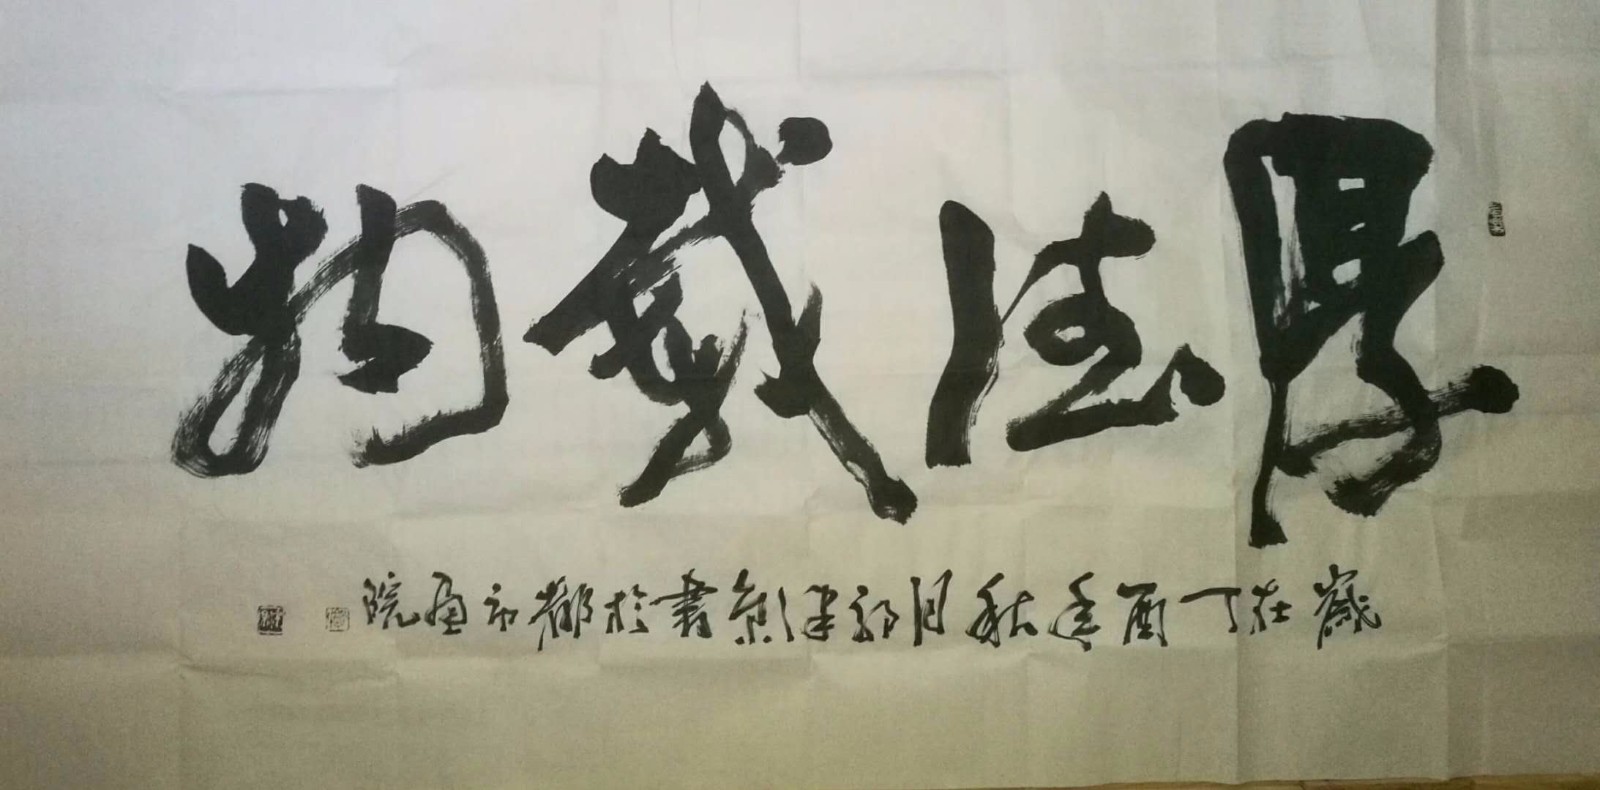 厚德载物
歲在丁酉年秋月郭建勳書於都市画院